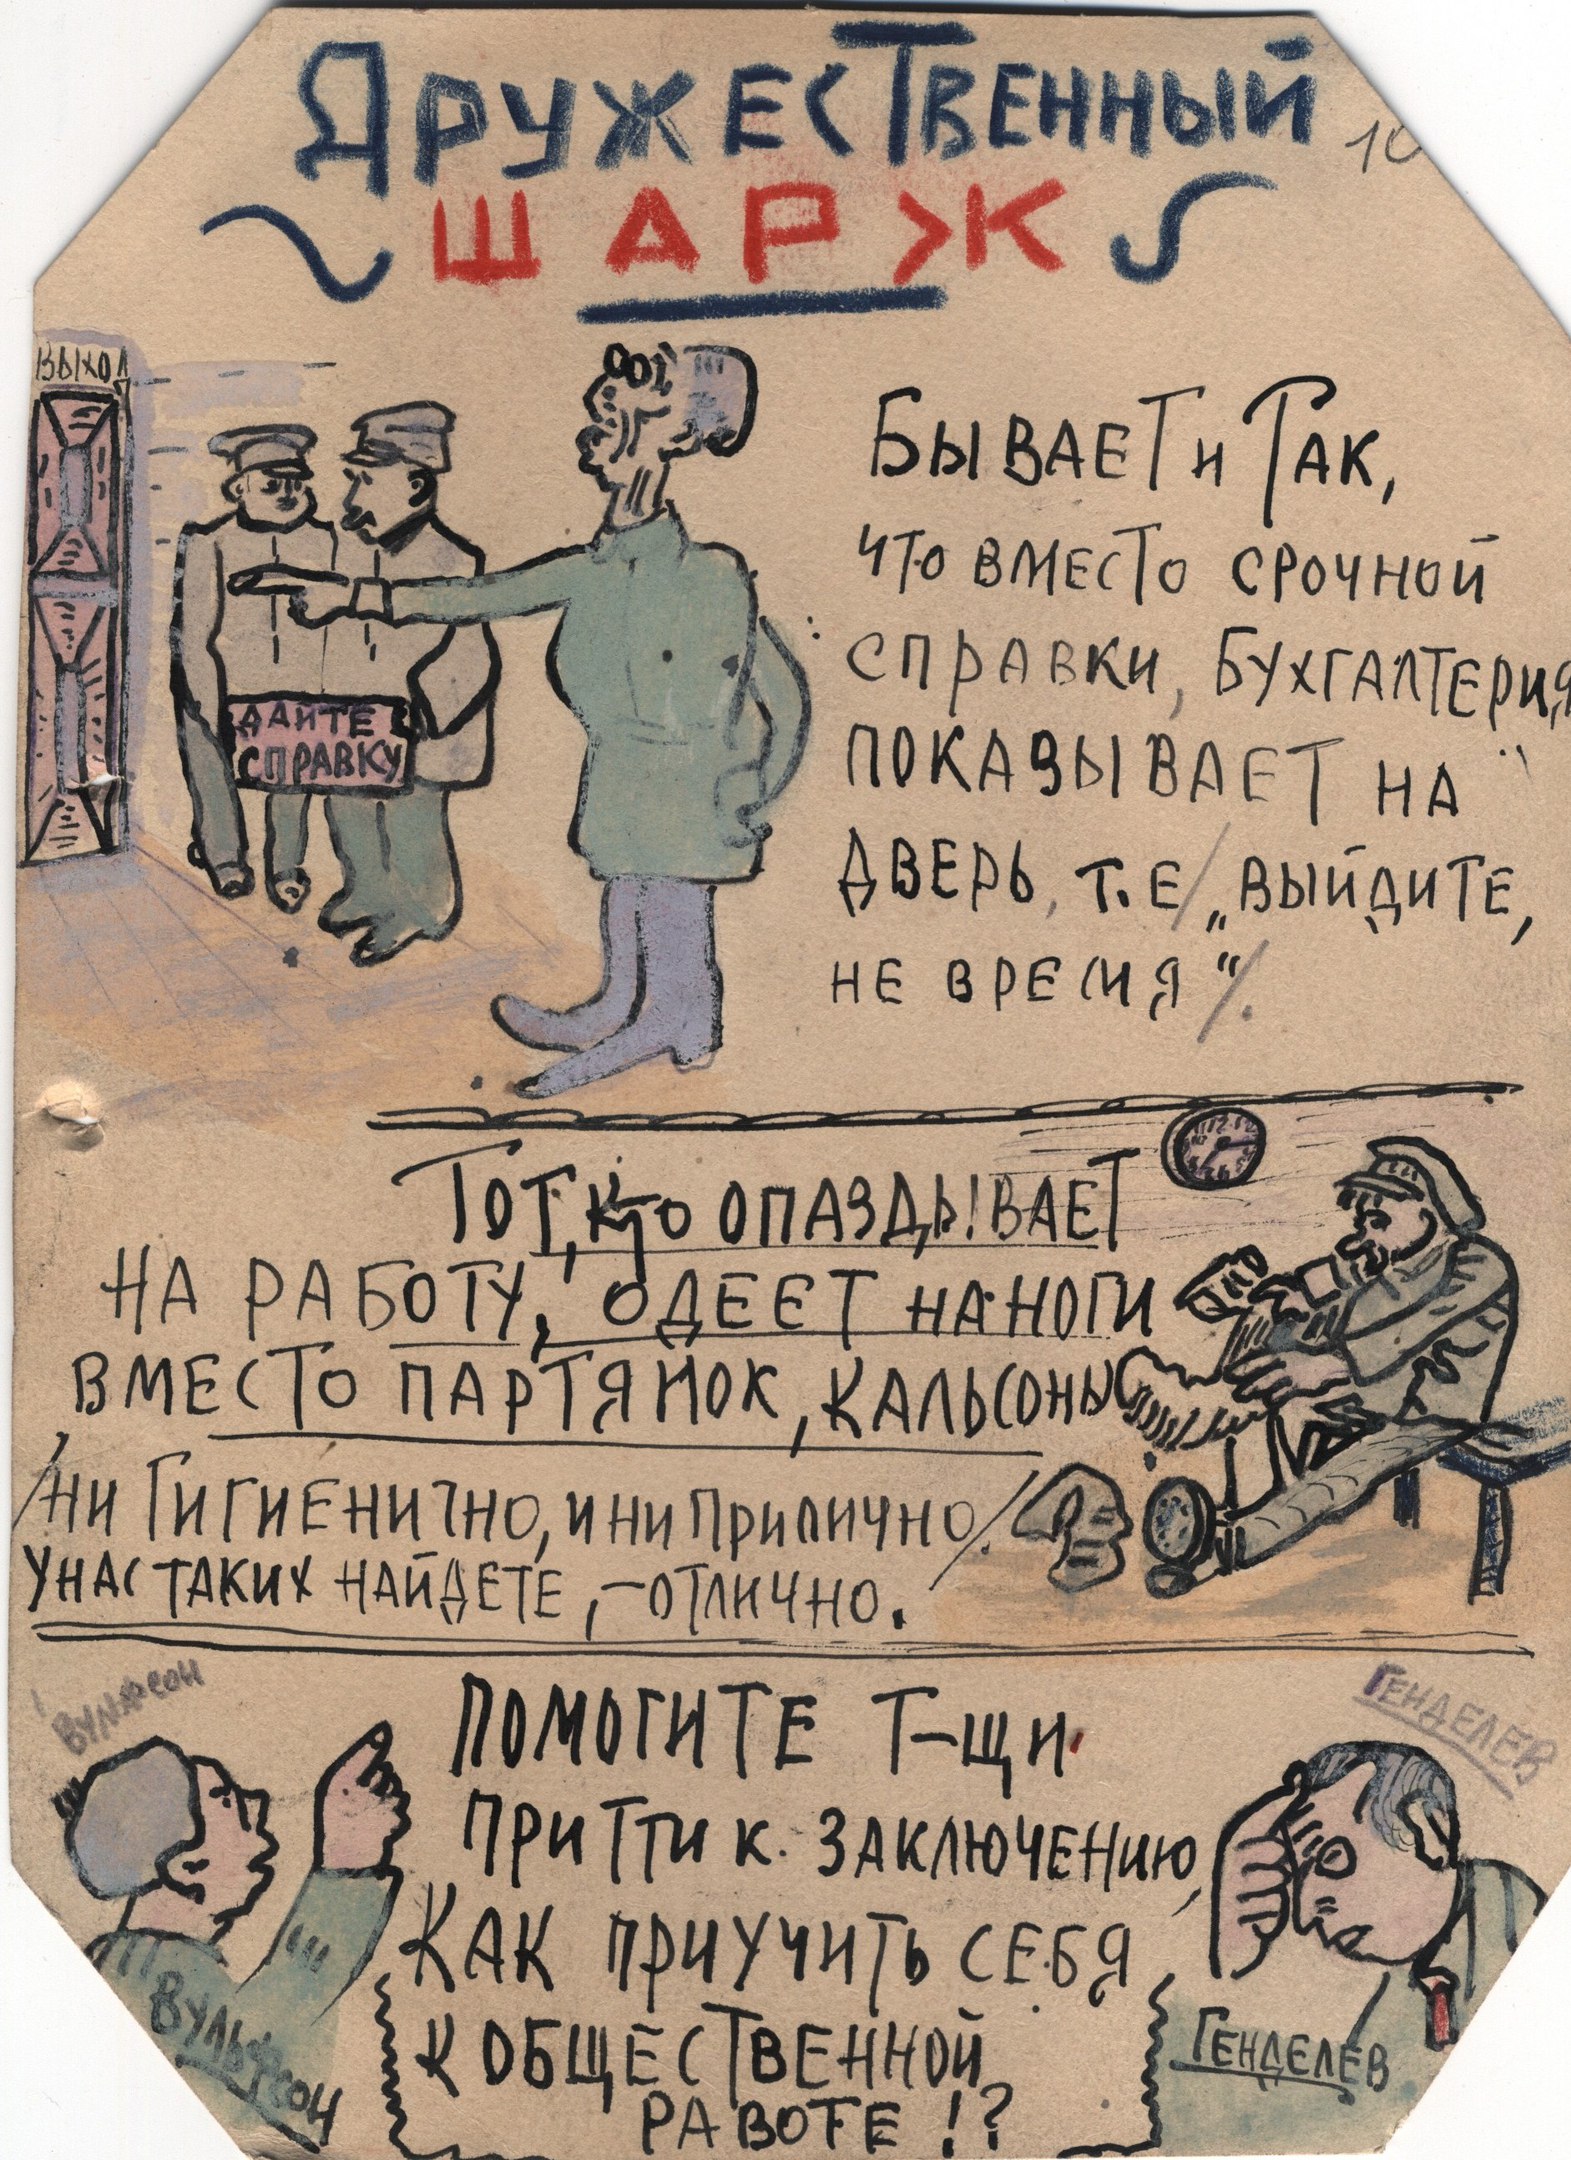 Дружественный
ШАРЖ
ВЫХОД
ДАЙТЕ
СПРАВКУ
Бывает и так,
что вместо срочной
справки, бухгалтерия
показывает на
дверь, т.е/ „выйдите,
не время“/.
Тот, кто опаздывает
на работу, одеет на ноги
вместо партянок, кальсоны
/ни гигиенично, и ни прилично/.
У нас таких найдете, – отлично.
Вульфсон
Генделев
Помогите т-щи
притти к заключению,
как приучить себя
к общественной
работе!?
Вульфсон
Генделев